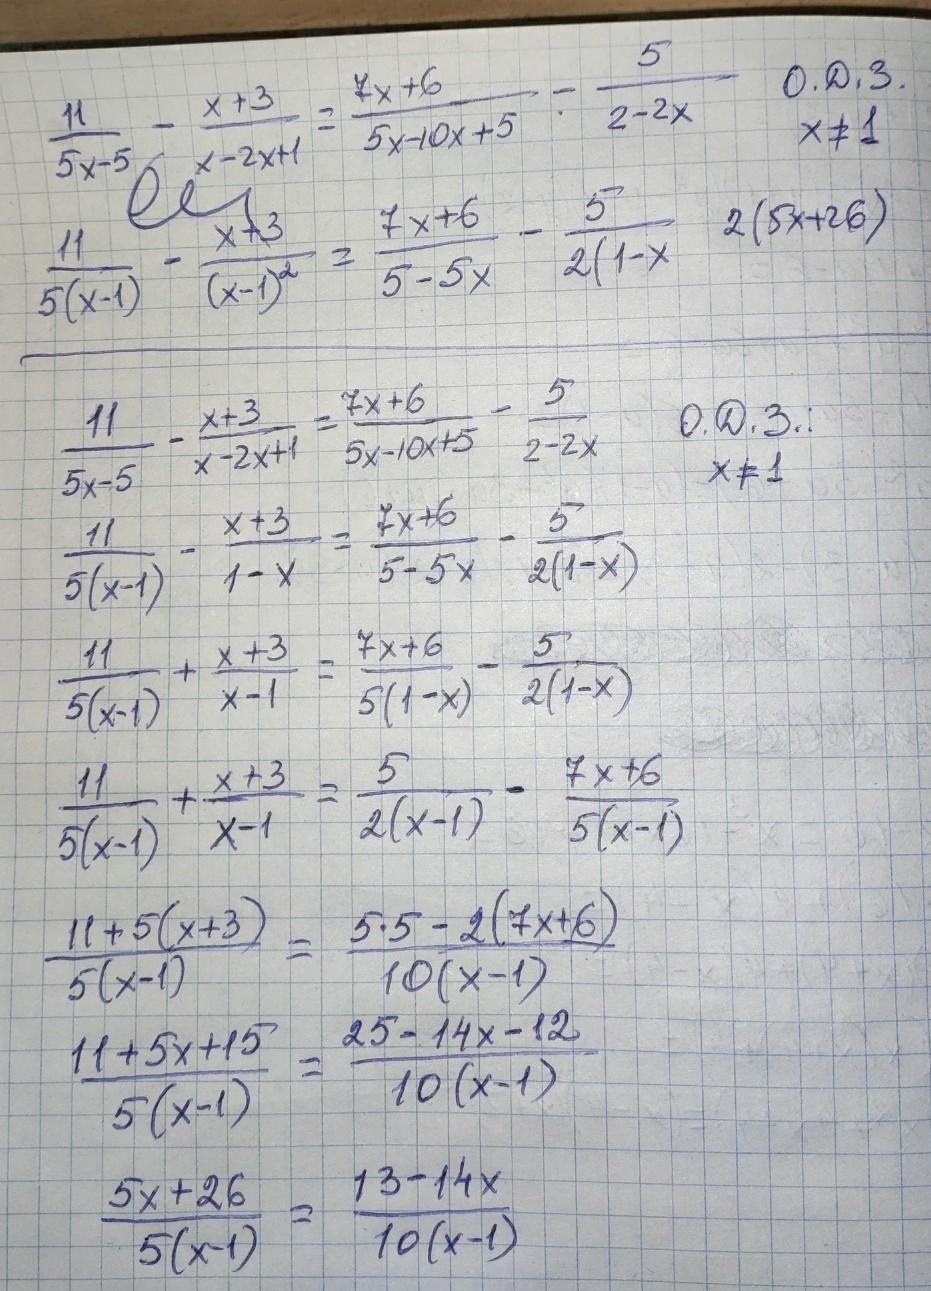 11/(5x-5) - (x+3)/(x-2x+1) = (7x+6)/(5x-10x+5) - 5/(2-2x) О.Д.З.
x≠1
11/(5(x-1)) - (x+3)/(x-1)² = (7x+6)/(5-5x) - 5/(2(1-x 2(5x+26)
11/(5x-5) - (x+3)/(x-2x+1) = (7x+6)/(5x-10x+5) - 5/(2-2x) О.Д.З.:
x≠1
11/(5(x-1)) - (x+3)/(1-x) = (7x+6)/(5-5x) - 5/(2(1-x))
11/(5(x-1)) + (x+3)/(x-1) = (7x+6)/(5(1-x)) - 5/(2(1-x))
11/(5(x-1)) + (x+3)/(x-1) = 5/(2(x-1)) - (7x+6)/(5(x-1))
(11+5(x+3))/(5(x-1)) = (5·5-2(7x+6))/(10(x-1))
(11+5x+15)/(5(x-1)) = (25-14x-12)/(10(x-1))
(5x+26)/(5(x-1)) = (13-14x)/(10(x-1))